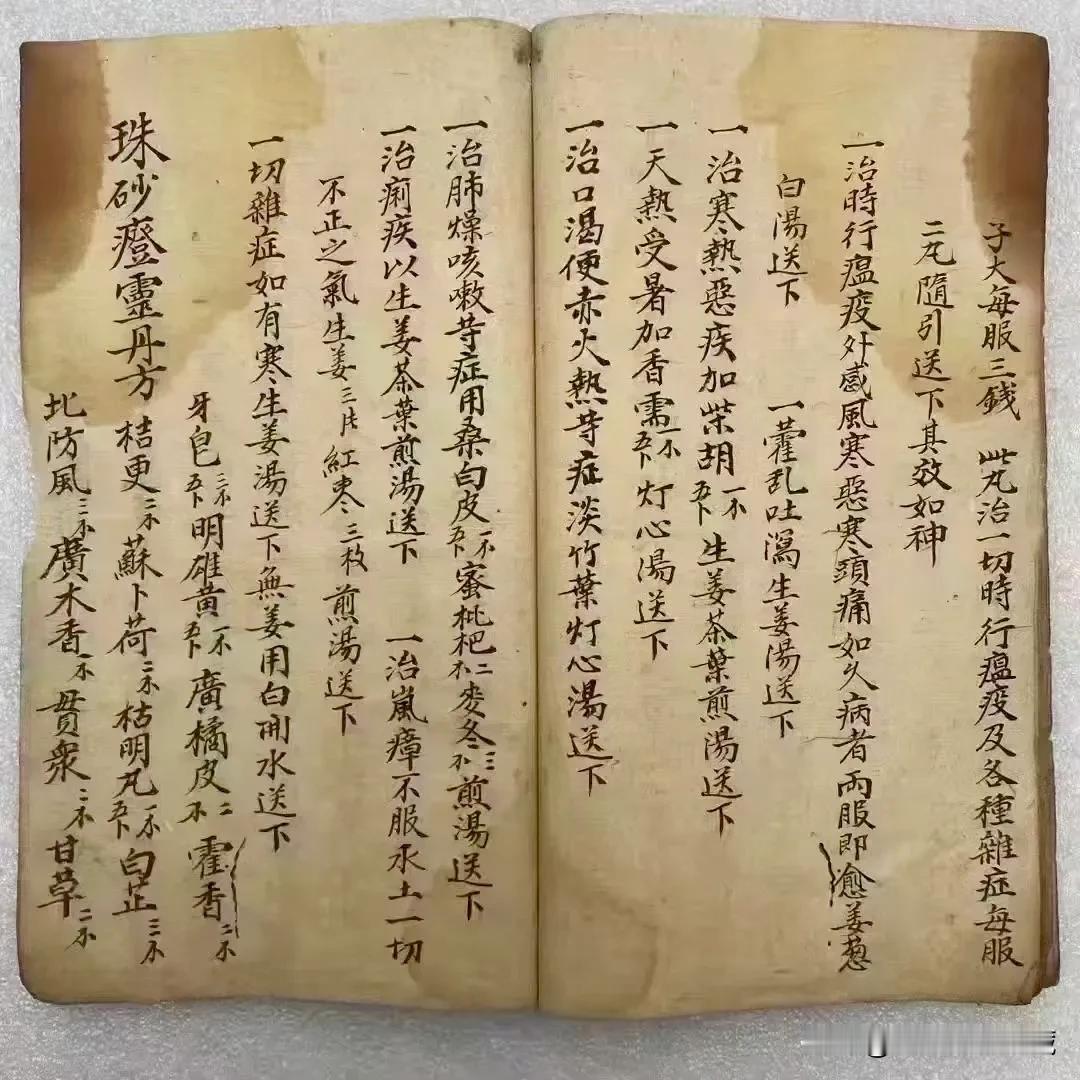 子大每服三錢　此丸治一切時行瘟疫及各種雜症每服
二丸隨引送下其效如神
一治時行瘟疫外感風寒惡寒頭痛如久病者兩服即愈姜葱
白湯送下　一藿乱吐瀉生姜湯送下
一治寒熱惡疾加柴胡生姜茶葉煎湯送下
一天熱受暑加香需灯心湯送下
一治口渴便赤火熱等症淡竹葉灯心湯送下
一治肺燥咳嗽等症用桑白皮蜜枇杷麥冬煎湯送下
一治痢疾以生姜茶葉煎湯送下　一治嵐瘴不服水土一切
不正之氣生姜三片紅枣三枚煎湯送下
一切雜症如有寒生姜湯送下無姜用白開水送下
珠砂癍靈丹方
牙皂　明雄黃　廣橘皮　霍香
桔更　蘇卜荷　枯明凡　白芷
北防風　廣木香　貫衆　甘草